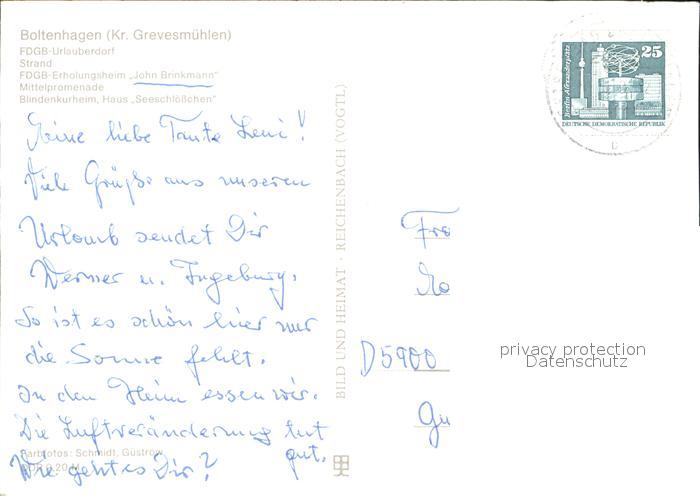 Boltenhagen (Kr. Grevesmühlen)
FDGB-Urlauberdorf
Strand
FDGB-Erholungsheim „John Brinkmann"
Mittelpromenade
Blindenkurheim, Haus „Seeschlößchen"
Meine liebe Tante Leni!
Viele Grüße aus unseren
Urlaub sendet Dir
Werner u. Ingeburg.
So ist es schön hier nur
die Sonne fehlt.
In den Heim essen wir.
Die Luftveränderung tut
gut.
Wie geht es Dir?
Farbfotos: Schmidt, Güstrow
BILD UND HEIMAT · REICHENBACH (VOGTL)
25
Berlin, Alexanderplatz
DEUTSCHE DEMOKRATISCHE REPUBLIK
Fra
D5900
Gu
privacy protection
Datenschutz